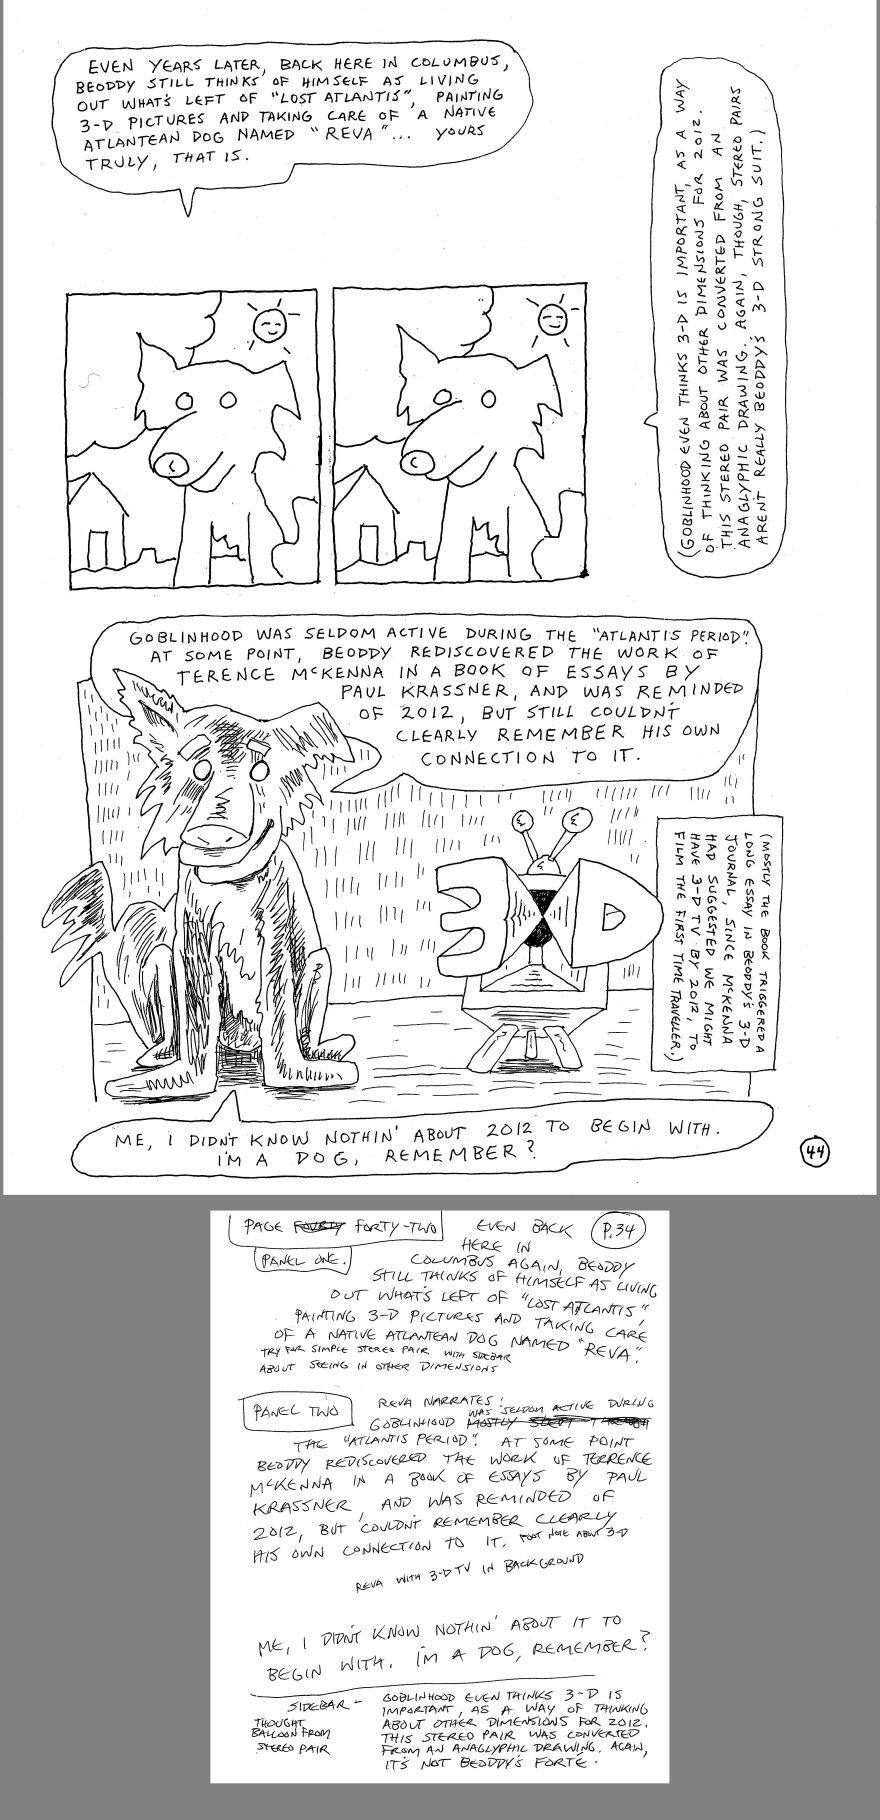 EVEN YEARS LATER, BACK HERE IN COLUMBUS,
BEODDY STILL THINKS OF HIMSELF AS LIVING
OUT WHAT'S LEFT OF "LOST ATLANTIS", PAINTING
3-D PICTURES AND TAKING CARE OF A NATIVE
ATLANTEAN DOG NAMED "REVA"... YOURS
TRULY, THAT IS.
(GOBLINHOOD EVEN THINKS 3-D IS IMPORTANT, AS A WAY
OF THINKING ABOUT OTHER DIMENSIONS FOR 2012.
THIS STEREO PAIR WAS CONVERTED FROM AN
ANAGLYPHIC DRAWING. AGAIN, THOUGH, STEREO PAIRS
AREN'T REALLY BEODDY'S 3-D STRONG SUIT.)
GOBLINHOOD WAS SELDOM ACTIVE DURING THE "ATLANTIS PERIOD".
AT SOME POINT, BEODDY REDISCOVERED THE WORK OF
TERENCE McKENNA IN A BOOK OF ESSAYS BY
PAUL KRASSNER, AND WAS REMINDED
OF 2012, BUT STILL COULDN'T
CLEARLY REMEMBER HIS OWN
CONNECTION TO IT.
3D
(MOSTLY THE BOOK TRIGGERED A
LONG ESSAY IN BEODDY'S 3-D
JOURNAL, SINCE McKENNA
HAD SUGGESTED WE MIGHT
HAVE 3-D TV BY 2012, TO
FILM THE FIRST TIME TRAVELLER.)
ME, I DIDN'T KNOW NOTHIN' ABOUT 2012 TO BEGIN WITH.
I'M A DOG, REMEMBER?
44
PAGE FOURTY FORTY-TWO
P.34
PANEL ONE.
EVEN BACK
HERE IN
COLUMBUS AGAIN, BEODDY
STILL THINKS OF HIMSELF AS LIVING
OUT WHAT'S LEFT OF "LOST ATLANTIS",
PAINTING 3-D PICTURES AND TAKING CARE
OF A NATIVE ATLANTEAN DOG NAMED "REVA".
TRY FOR SIMPLE STEREO PAIR WITH SIDEBAR
ABOUT SEEING IN OTHER DIMENSIONS
PANEL TWO
REVA NARRATES:
WAS SELDOM ACTIVE DURING
GOBLINHOOD MOSTLY SLEPT THROUGH
THE "ATLANTIS PERIOD". AT SOME POINT
BEODDY REDISCOVERED THE WORK OF TERRENCE
McKENNA IN A BOOK OF ESSAYS BY PAUL
KRASSNER, AND WAS REMINDED OF
2012, BUT COULDN'T REMEMBER CLEARLY
HIS OWN CONNECTION TO IT. FOOT NOTE ABOUT 3-D
REVA WITH 3-D TV IN BACKGROUND
ME, I DIDN'T KNOW NOTHIN' ABOUT IT TO
BEGIN WITH. I'M A DOG, REMEMBER?
SIDEBAR -
THOUGHT
BALLOON FROM
STEREO PAIR
GOBLINHOOD EVEN THINKS 3-D IS
IMPORTANT, AS A WAY OF THINKING
ABOUT OTHER DIMENSIONS FOR 2012.
THIS STEREO PAIR WAS CONVERTED
FROM AN ANAGLYPHIC DRAWING. AGAIN,
IT'S NOT BEODDY'S FORTÉ.